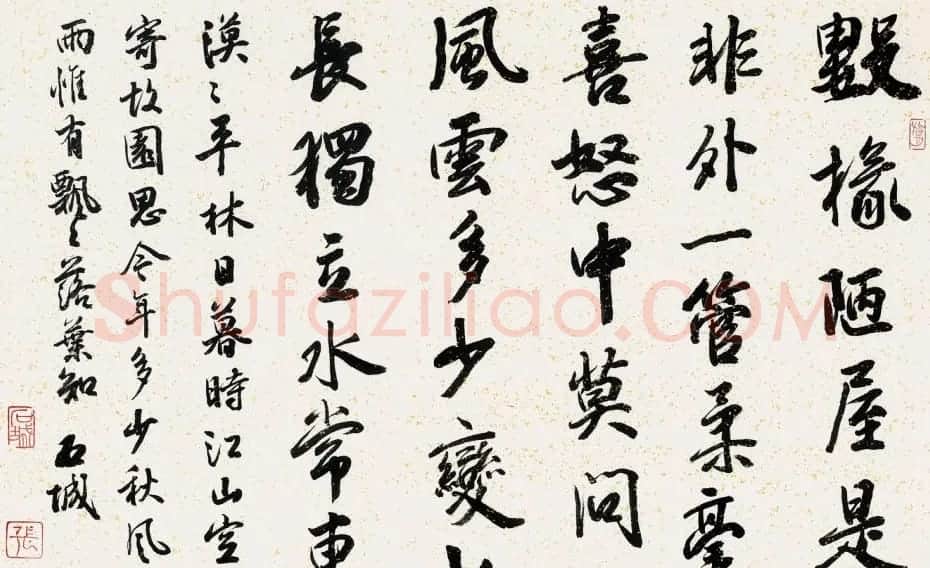 數椽陋屋是
非外一管柔毫
喜怒中莫問
風雲多少變
長獨立水常東
漠〻平林日暮時江山空
寄故園思今年多少秋風
雨惟有飄〻落葉知 石城
Shufaziliao.COM
張